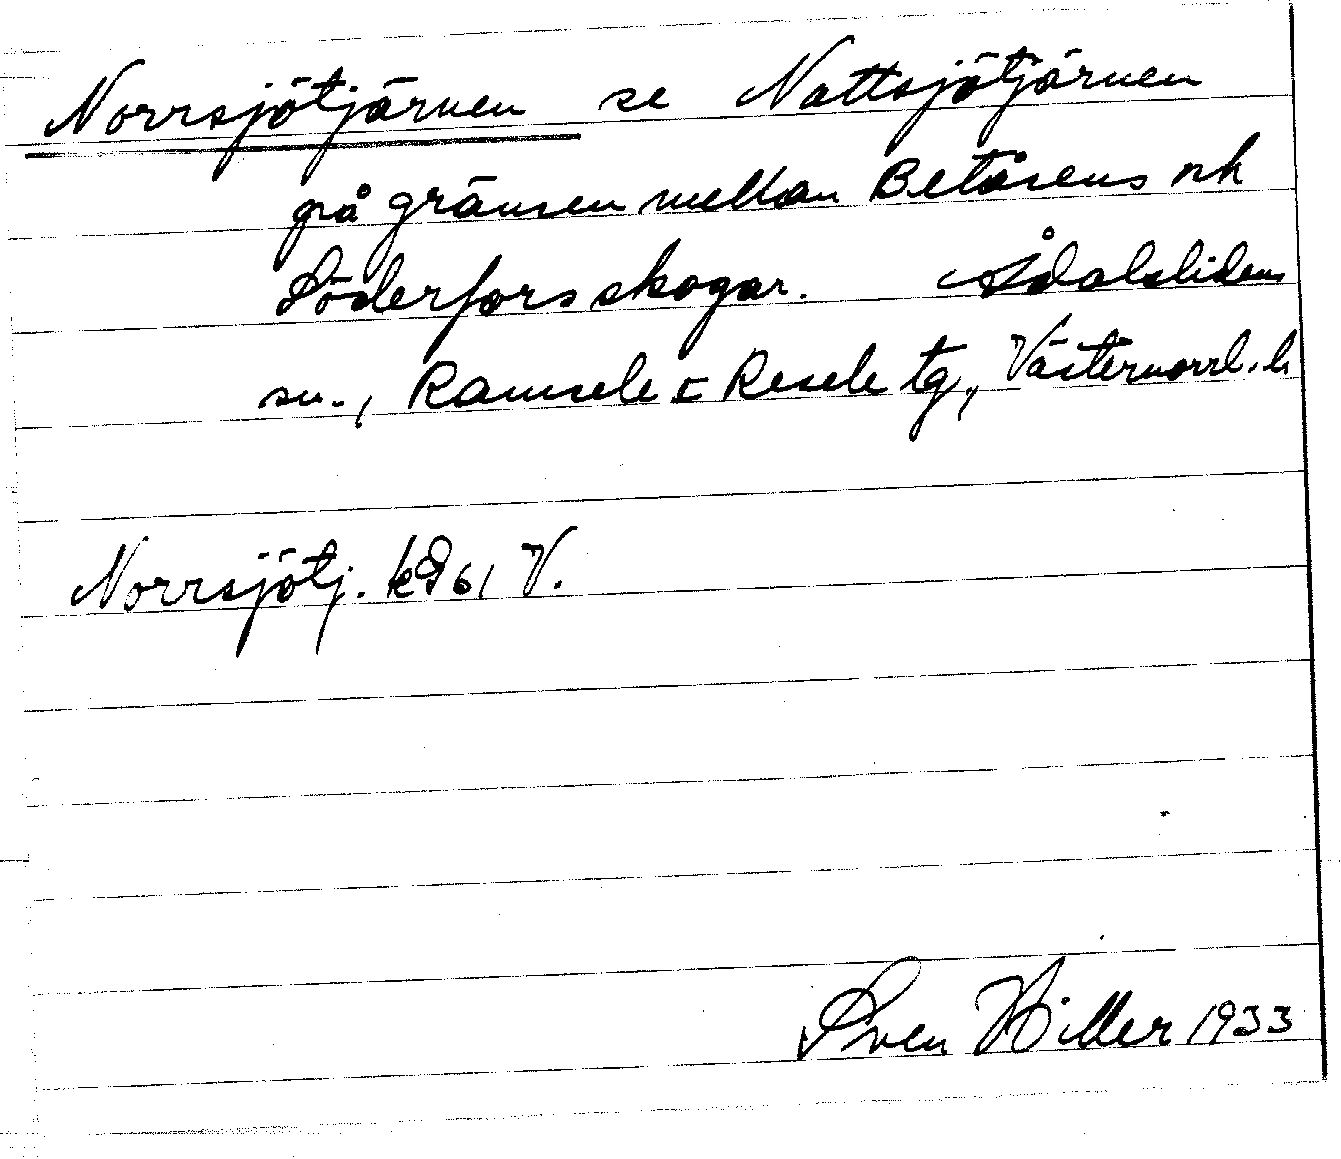 Norrsjötjärnen se Nattsjötjärnen
på gränsen mellan Betåsens och
Söderfors skogar. Ådalslidens
sn., Ramsele o Resele tg, Västernorrl. l.
Norrsjötj. k 61 V.
Sven Hiller 1933